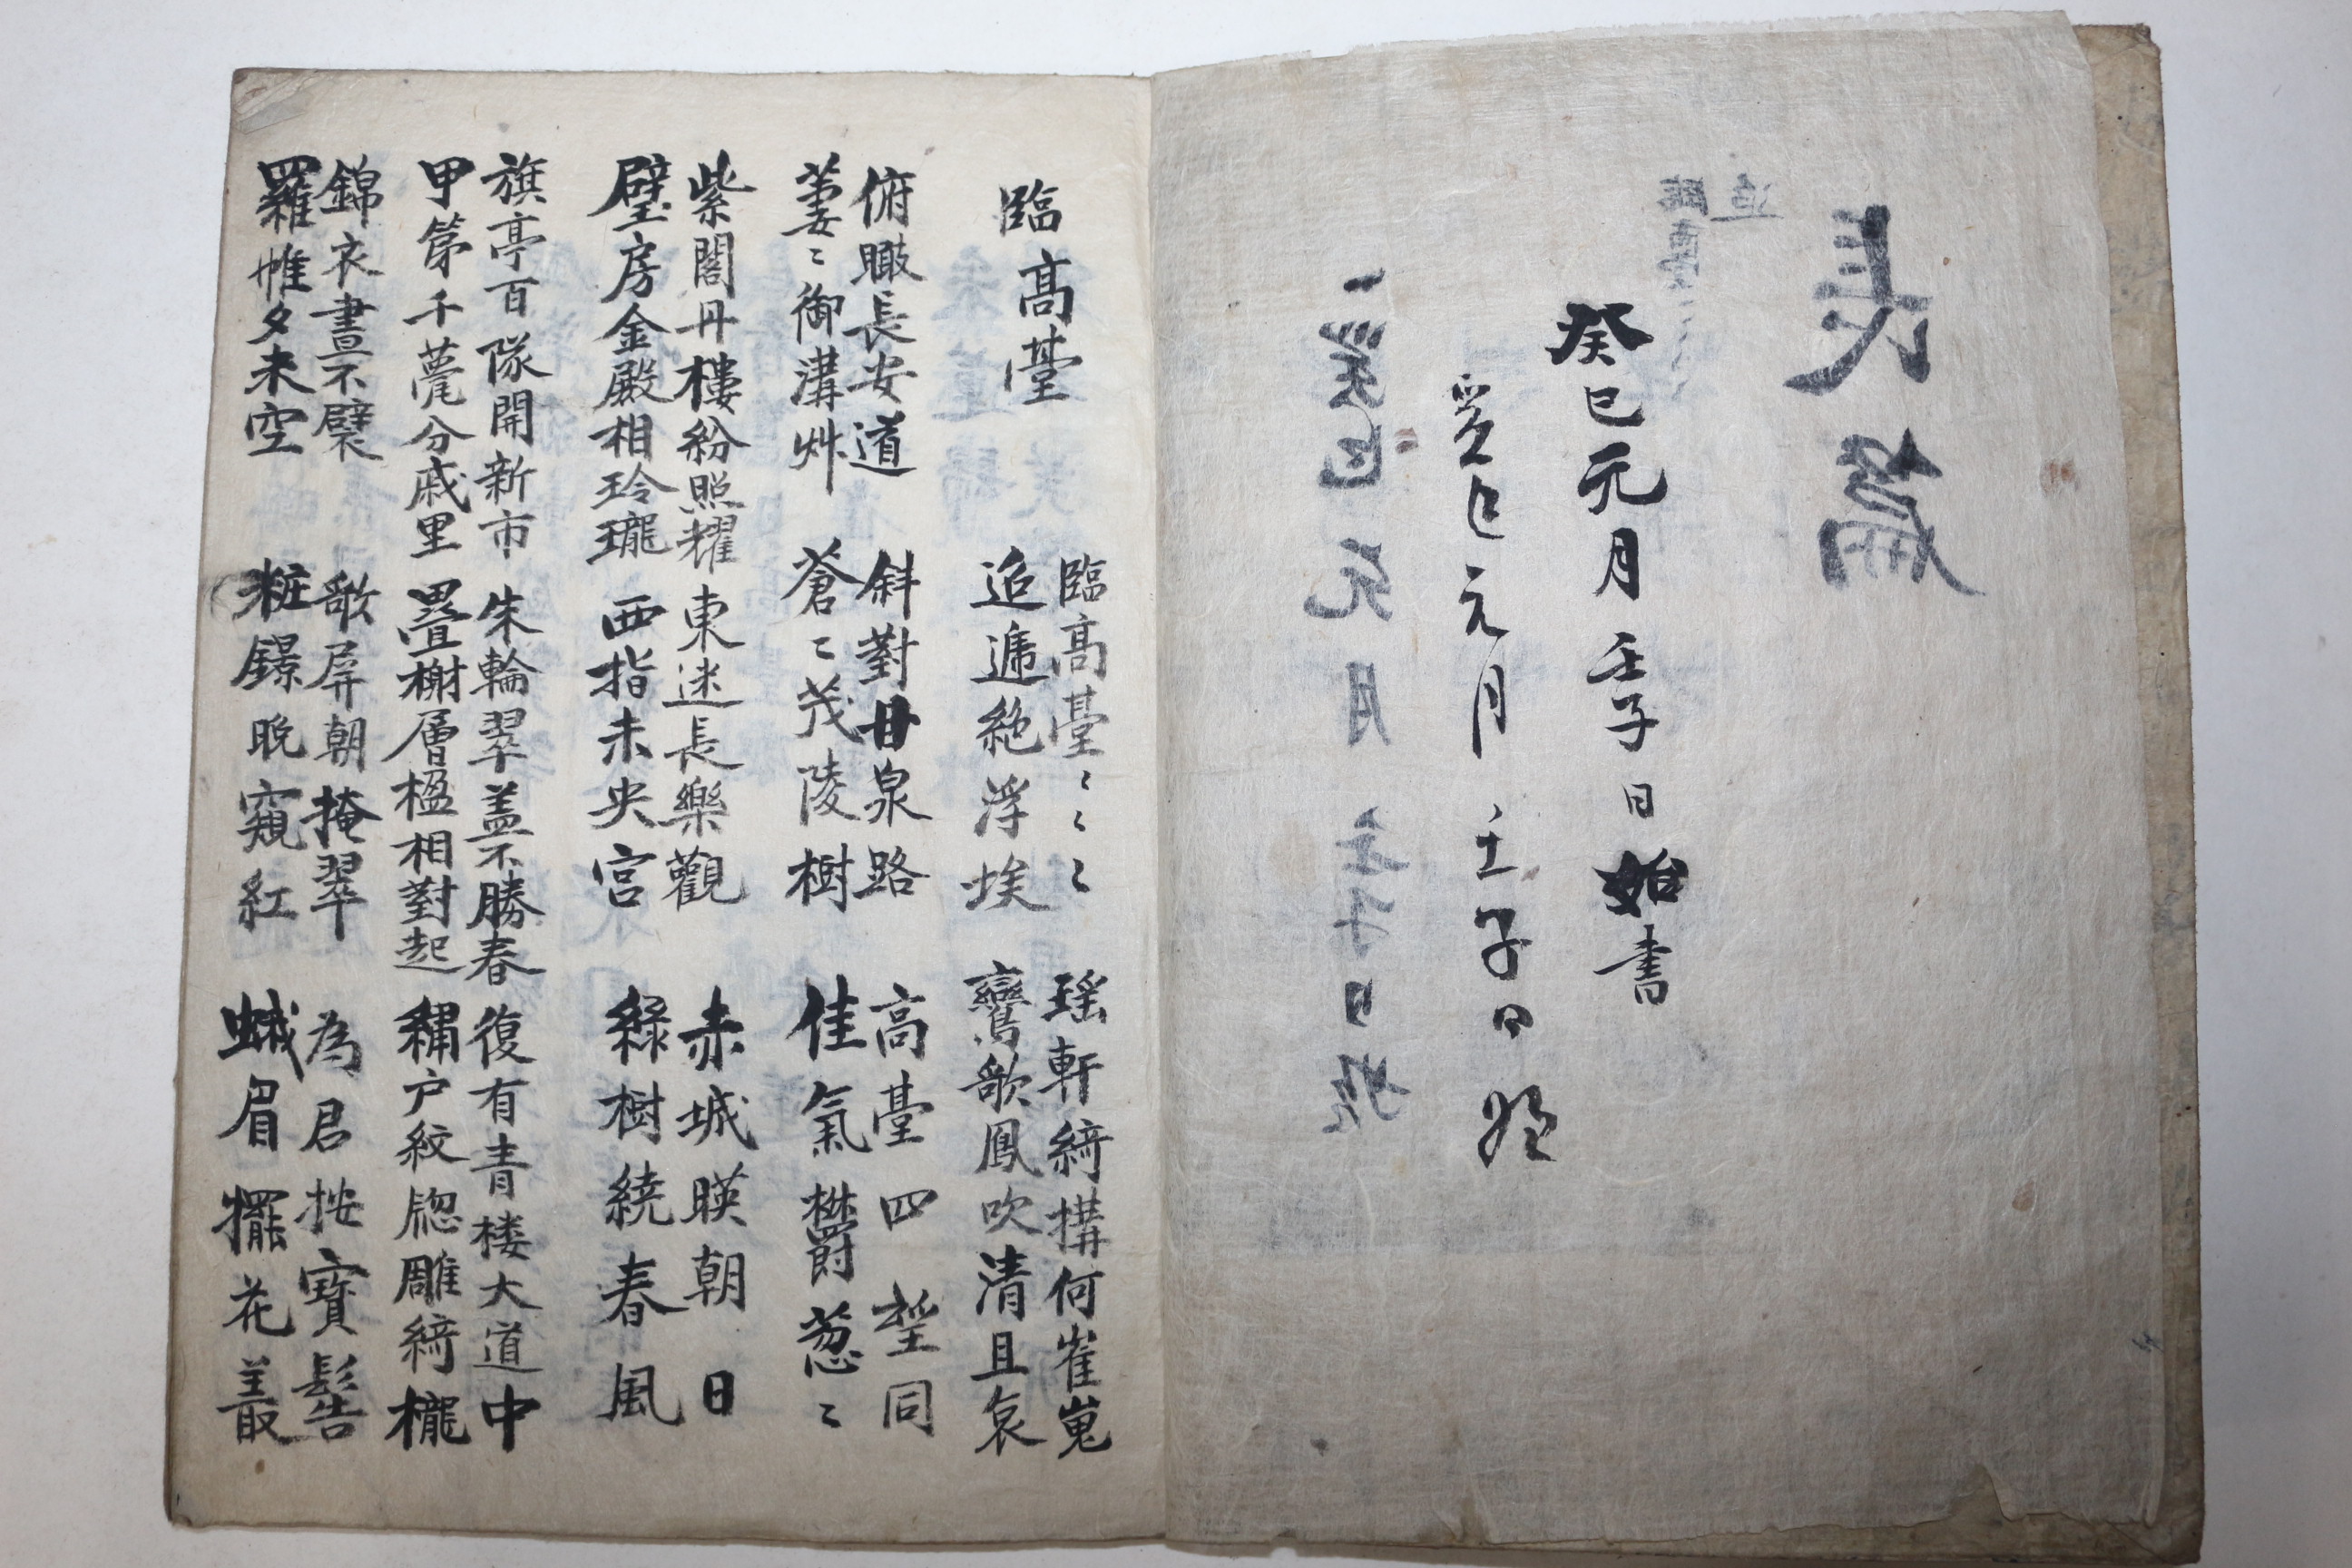 長篇
癸巳元月壬子日始書
癸巳元月壬子日
臨高臺
臨高臺〻〻〻
迢遞絶浮埃
瑶軒綺搆何崔嵬
鸞歌鳳吹清且哀
俯瞰長安道
萋〻御溝艸
斜對甘泉路
蒼〻茂陵樹
高臺四望同
佳氣欝葱〻
紫閣丹樓紛照耀
壁房金殿相玲瓏
東迷長樂觀
西指未央宮
赤城暎朝日
綠樹繞春風
旗亭百隊開新市
甲第千甍分戚里
朱輪翠盖不勝春
疊榭層楹相對起
復有青楼大道中
繡户紋牎雕綺櫳
錦衣晝不襞
羅帷夕未空
歌屏朝掩翠
粧鏡晚窺紅
為君按寶髻
蛾眉擺花叢